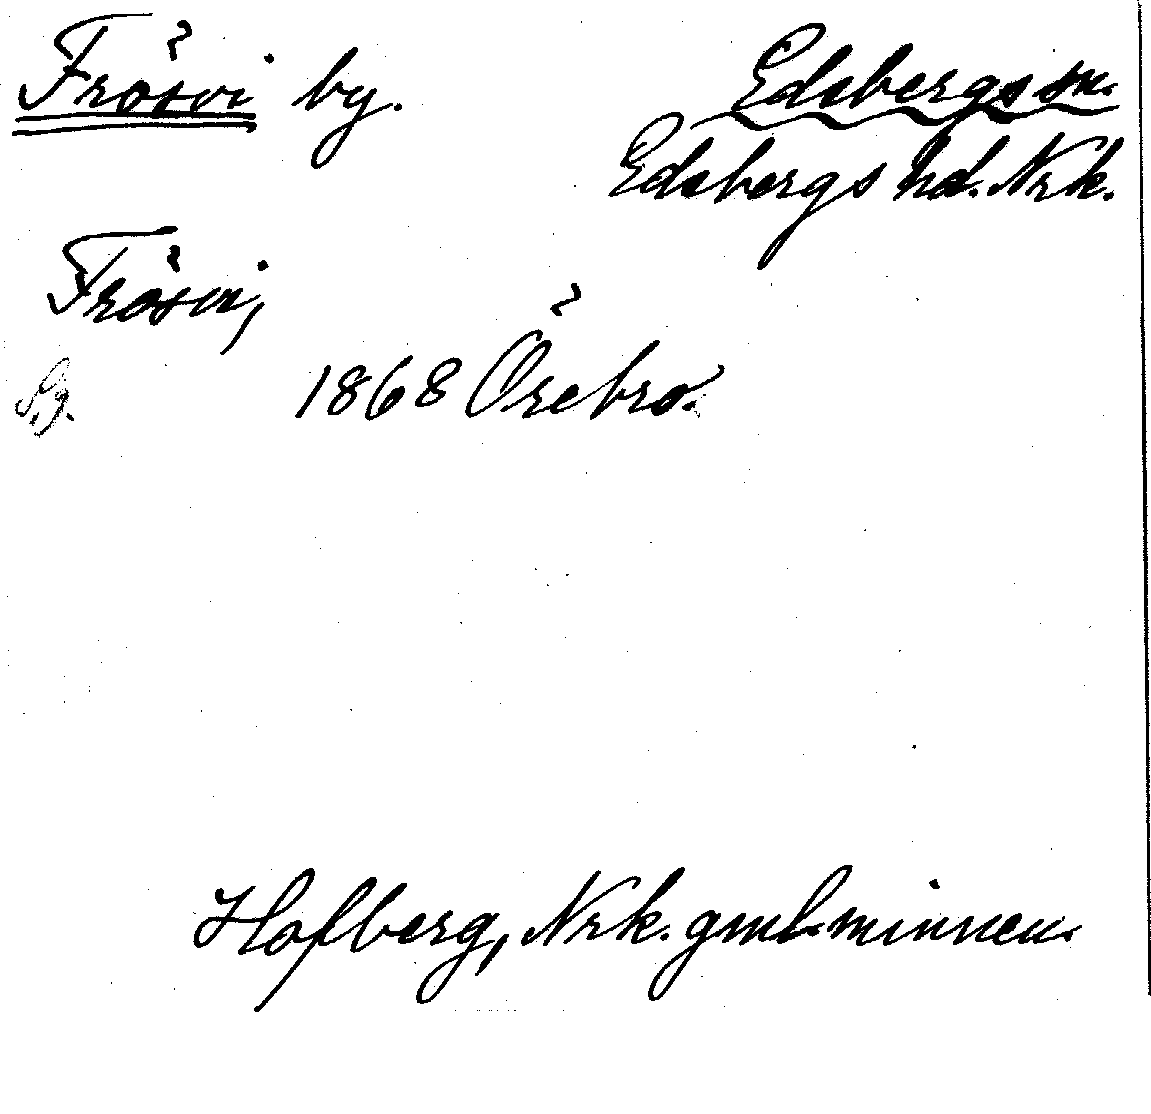 Frösvi by.
Edsbergs sn.
Edsbergs hd. Nrk.
Frösvi,
1868 Örebro.
Hofberg, Nrk. gml. minnen.